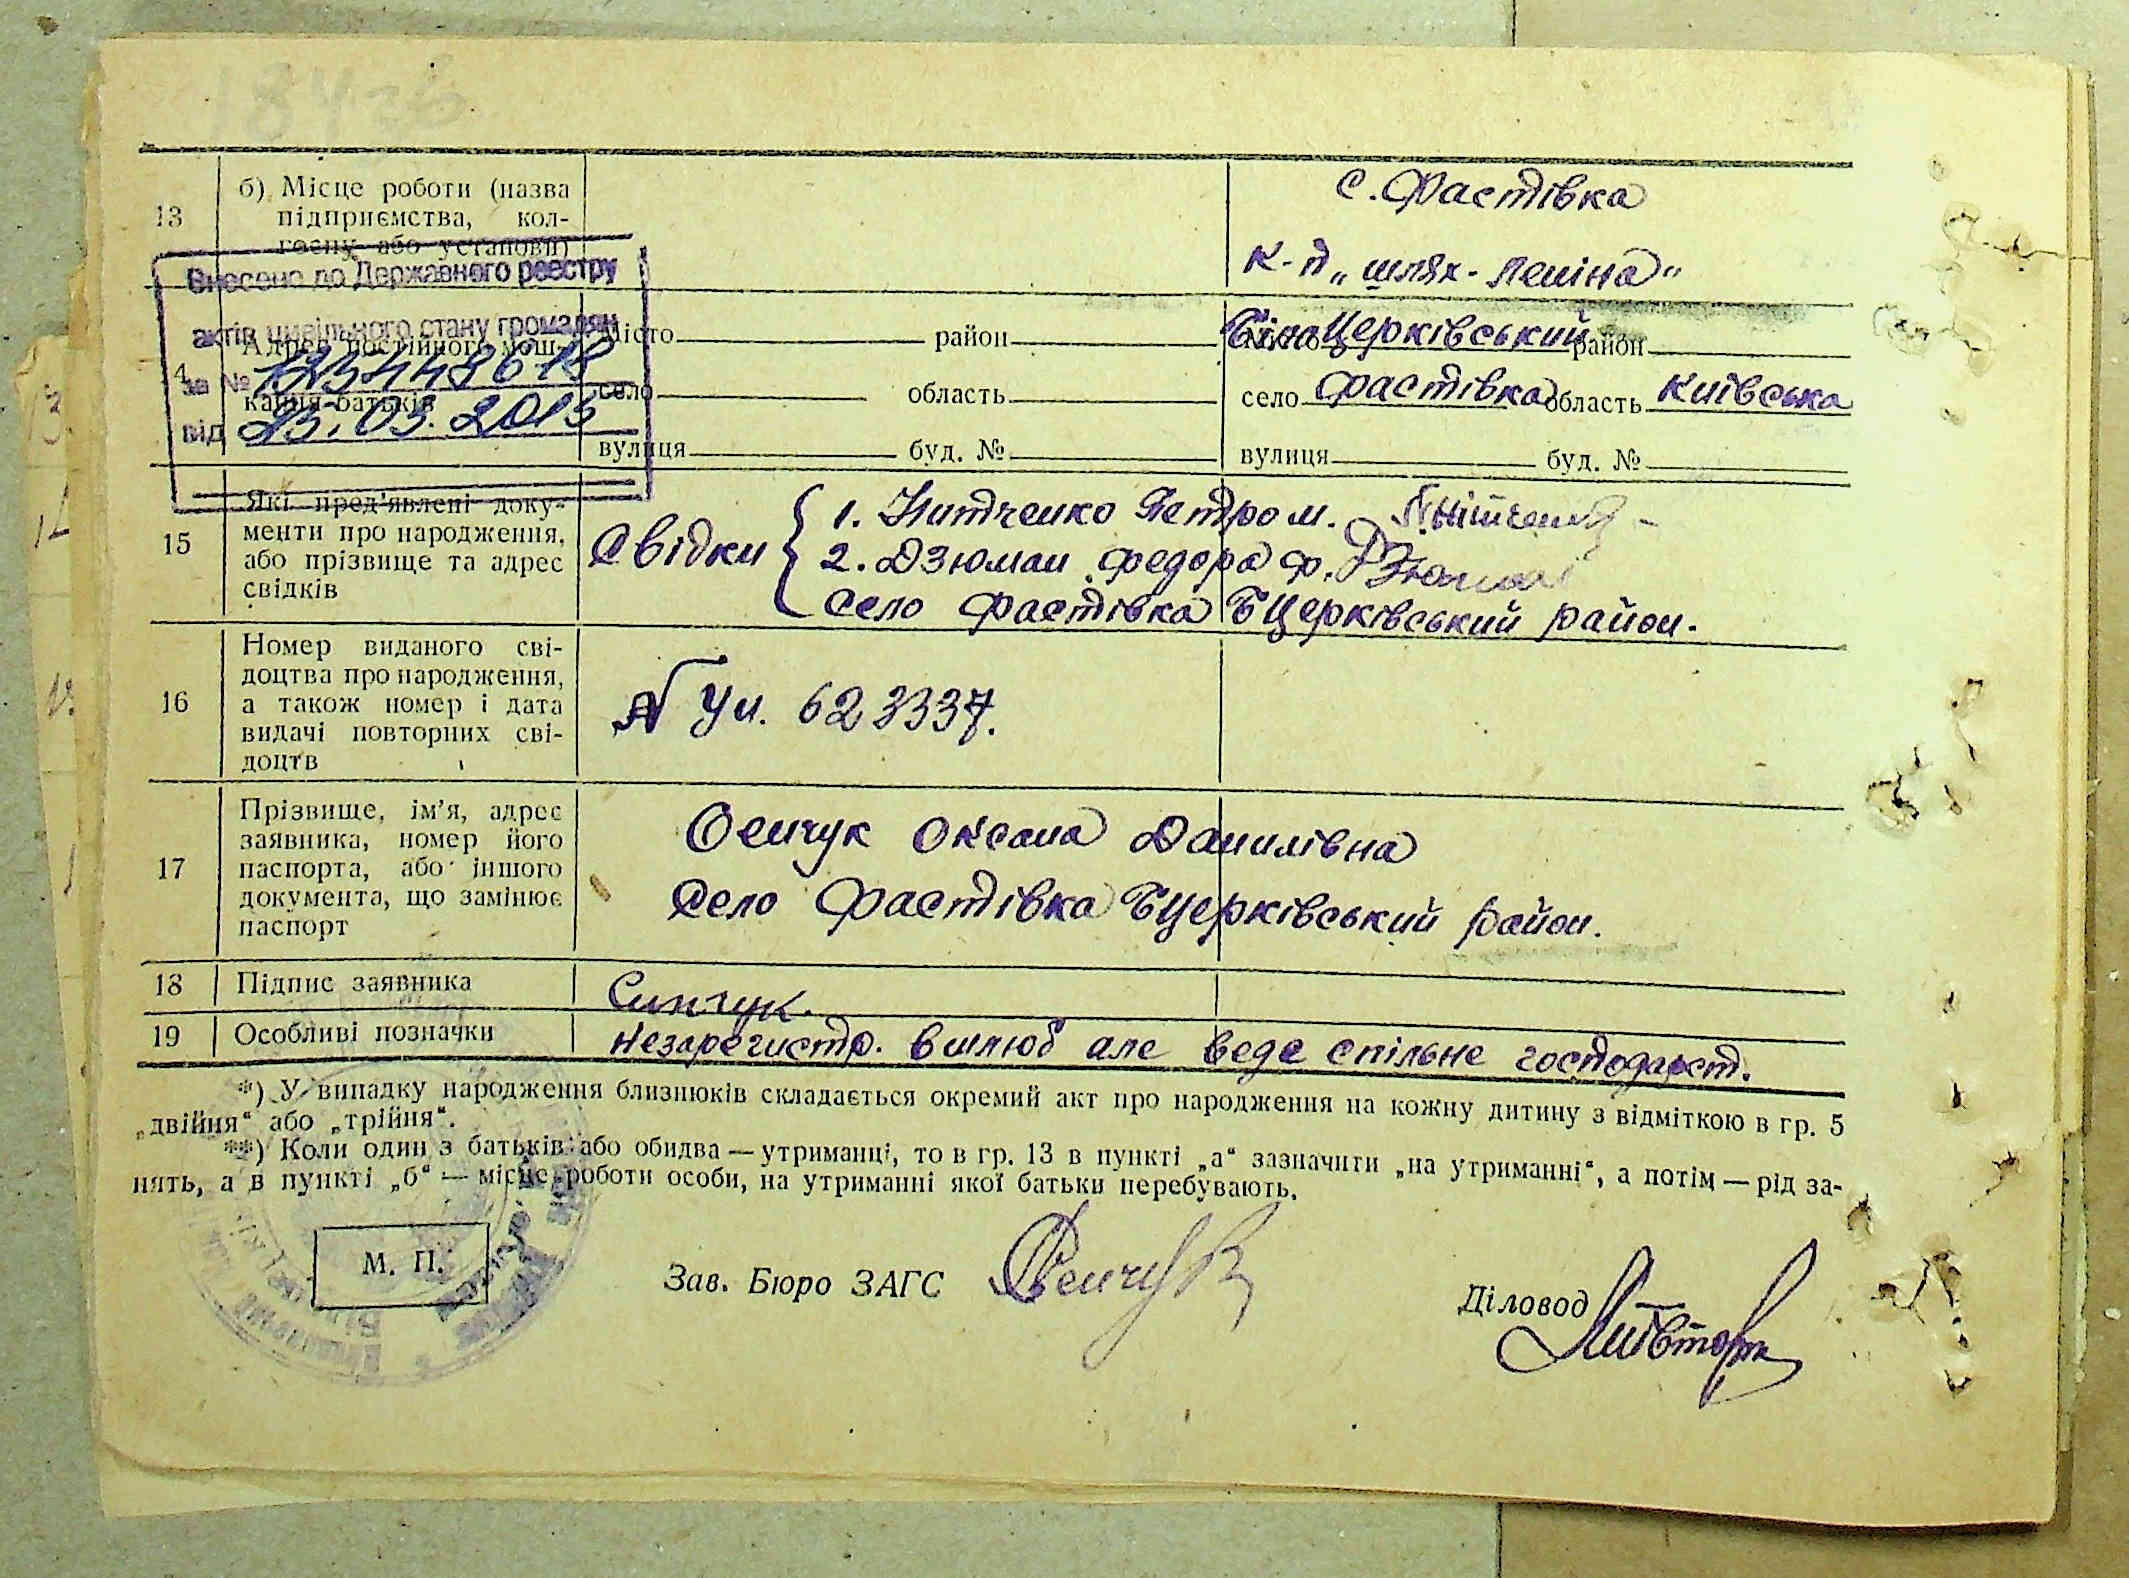 13
б) Місце роботи (назва
підприємства, кол-
госпу або установи)
с. Фастівка
к-п „шлях-Леніна"
Внесено до Державного реєстру
актів цивільного стану громадян
за №
від 23.03.2013
Адрес постійного меш-
кання батьків
місто район БілаЦерківський район
село область село Фастівка область Київська
вулиця буд. № вулиця буд. №
15
Які пред'явлені доку-
менти про народження,
або прізвище та адрес
свідків
Свідки
1. Нитченко Петро м.
2. Дзюман Федора ф.
село Фастівка БЦерківський район.
16
Номер виданого сві-
доцтва про народження,
а також номер і дата
видачі повторних сві-
доцтв
Уи. 623337.
17
Прізвище, ім'я, адрес
заявника, номер його
паспорта, або іншого
документа, що замінює
паспорт
Оксана Данилівна
Село Фастівка БЦерківський район.
18 Підпис заявника
19 Особливі позначки незарегистр. вшлюб але веде спільне господарст.
*) У випадку народження близнюків складається окремий акт про народження на кожну дитину з відміткою в гр. 5
„двійня“ або „трійня“.
**) Коли один з батьків або обидва — утриманці, то в гр. 13 в пункті „а“ зазначити „на утриманні“, а потім — рід за-
нять, а в пункті „б“ — місце роботи особи, на утриманні якої батьки перебувають.
М. П.
Зав. Бюро ЗАГС
Діловод